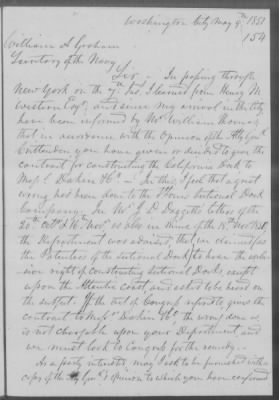 Washington City May 9th 1851
154
William A Graham
Secretary of the Navy
Sir - In passing through
New York on the 7th Inst, I learned from Henry M.
Western Esqr, and since my arrival in the City
have been informed by Mr William Thomas
that in accordance with the Opinion of the Atty Genl
Crittenden you have given or decided to give the
contract for constructing the California Dock to
Messrs Dakin &Co - In this, I feel that a great
wrong has been done to the Sectional Dock
Company. In Mr. J. D. Daggetts letters of the
20th Octr & 16 Novr as also in mine of the 18th Novr 1850
the Department was advised that we claimed (as
the Patentees of the Sectional Dock) to have the exclu-
sive right of constructing Sectional Docks, except
upon the Atlantic coast, and asked to be heard on
the subject. If the act of Congress opposed to give the
contract to Messrs Dakin & Co the wrong done us
is not chargable upon your Department, and
we must look to Congress for the remedy. -
As a party interested may I ask to be furnished with a
copy of the Atty Genl's opinion to which you have conformed